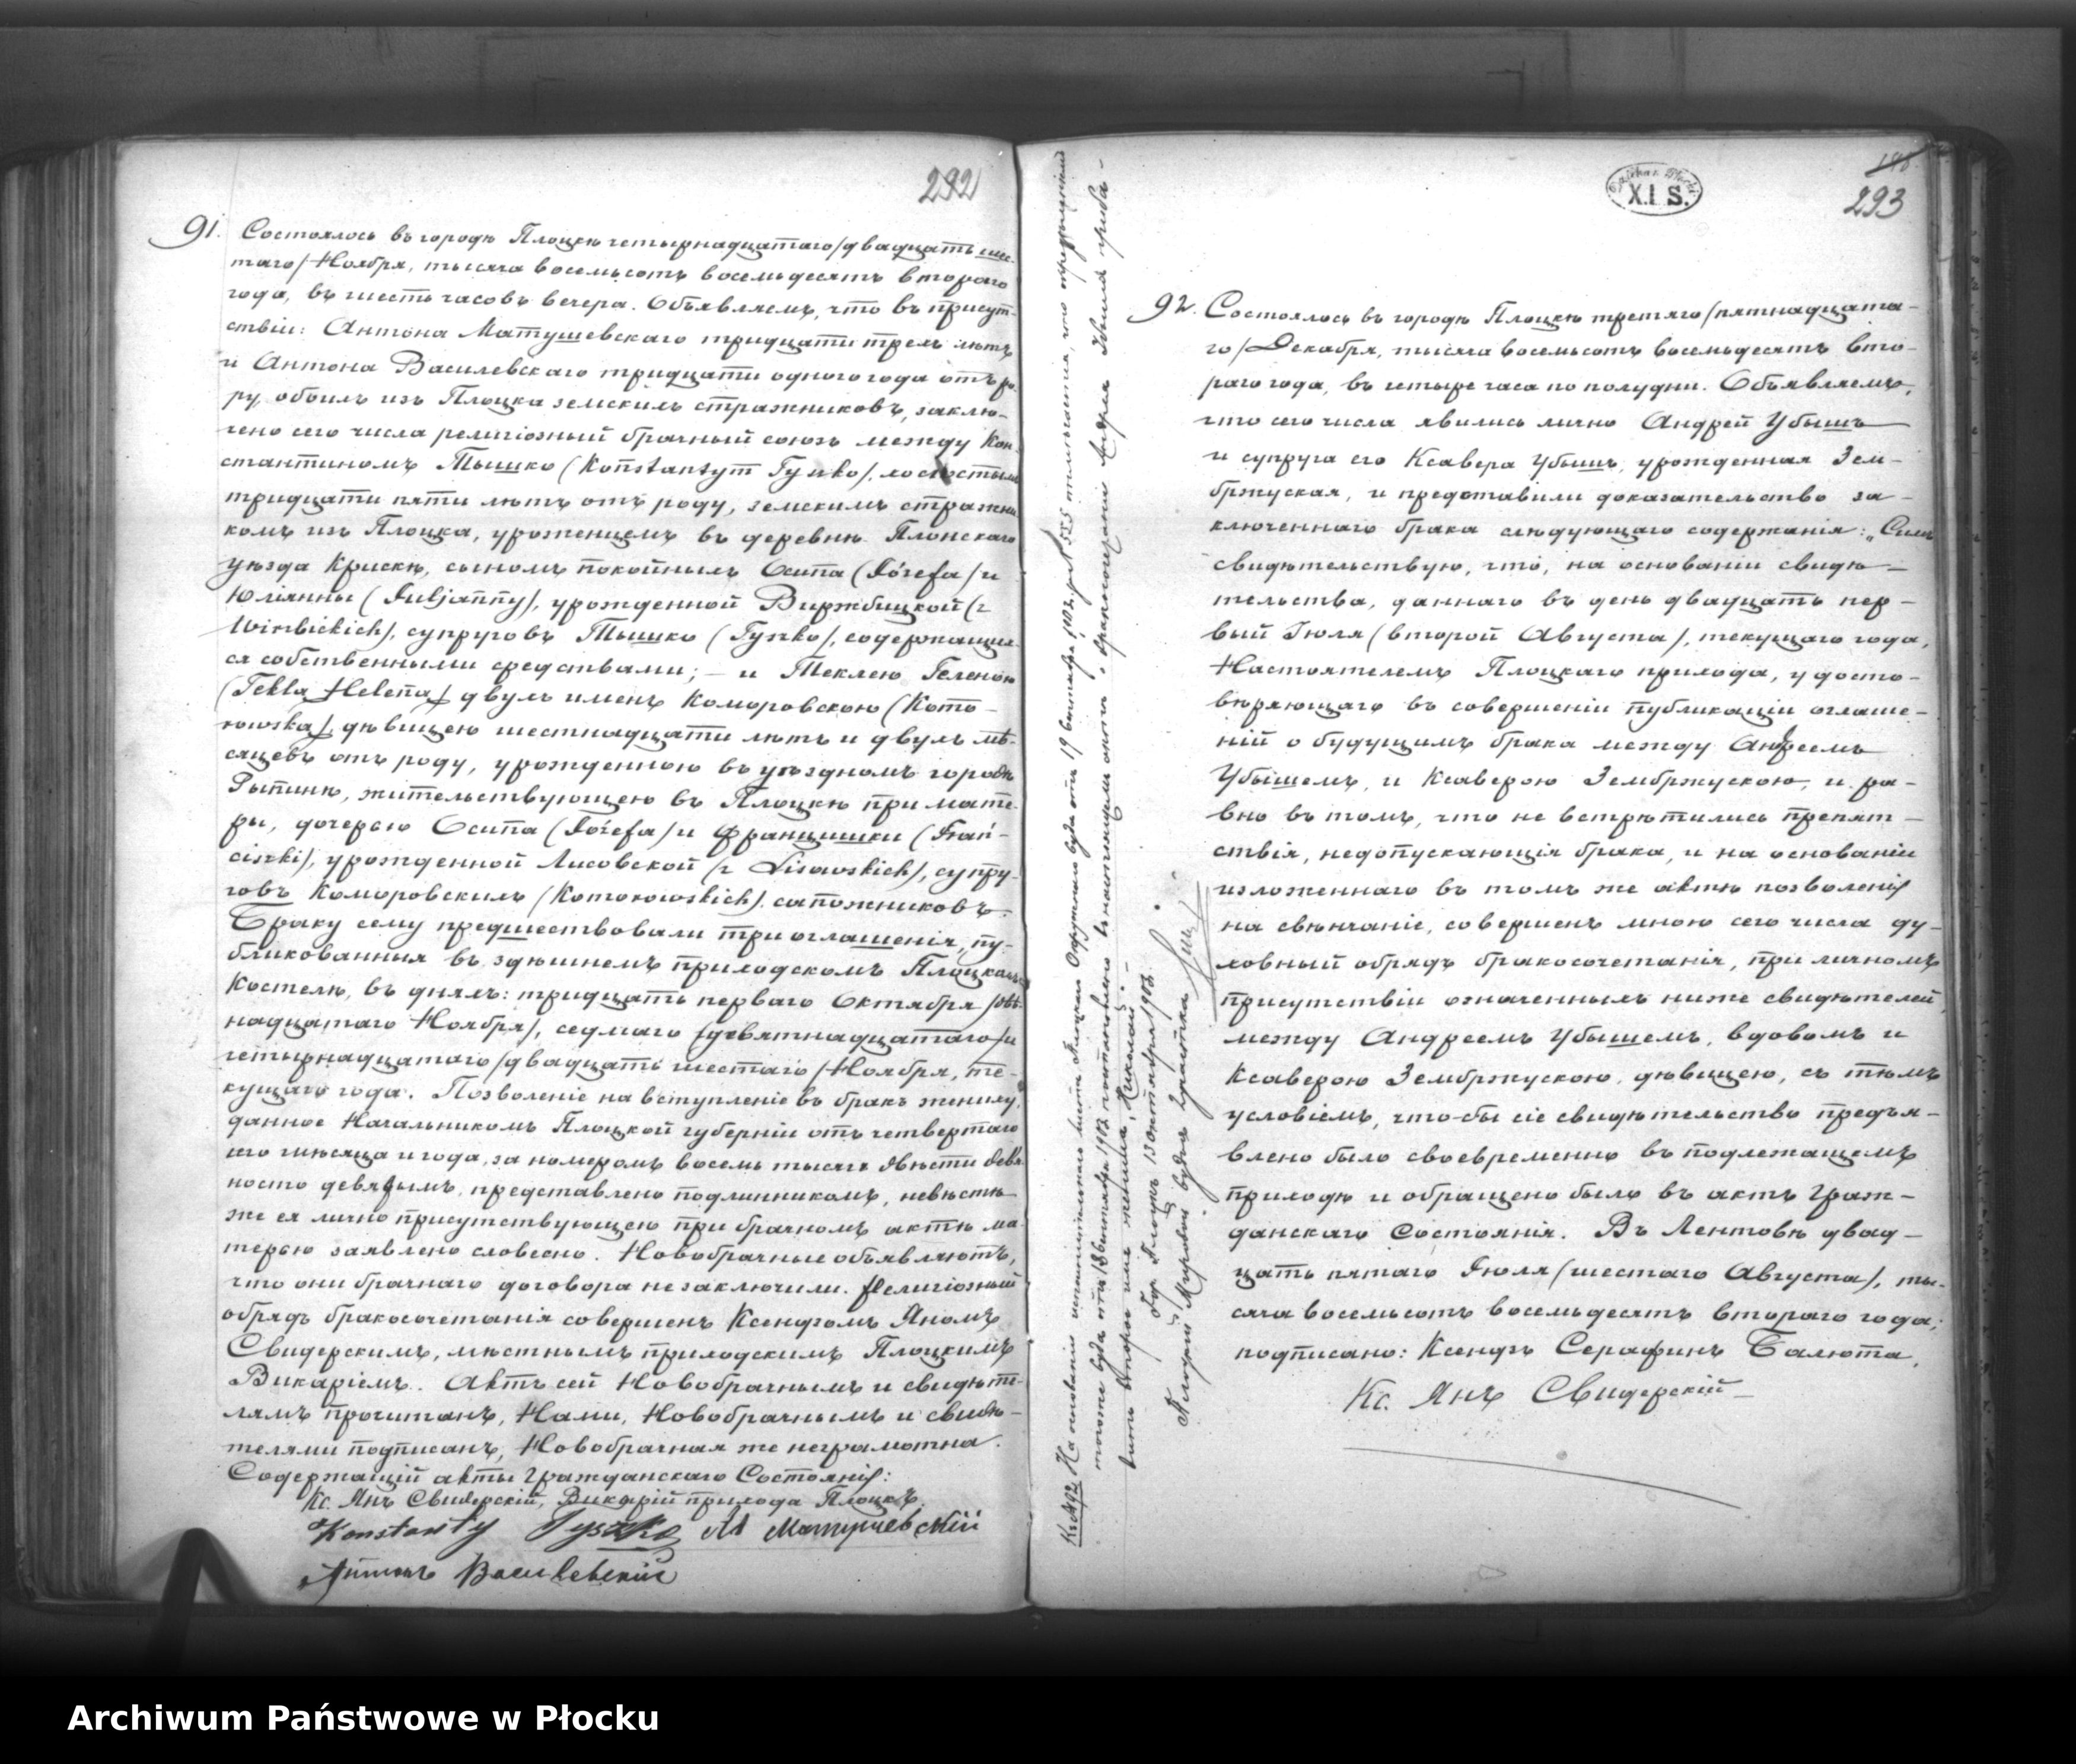 292
91. Состоялось въ городѣ Плоцкѣ четырнадцатаго /двадцать шес-
таго/ Ноября, тысяча восемьсотъ восемьдесятъ втораго
года, въ шесть часовъ вечера. Объявляемъ, что въ присут-
ствіи: Антона Матушевскаго тридцати трехъ лѣтъ
и Антона Василевскаго тридцати одного года отъ ро-
ру, обоихъ изъ Плоцка земскихъ стражниковъ, заклю-
чено сего числа религіозный брачный союзъ между Кон-
стантиномъ Тышко (Konstantym Tyszko), холостымъ
тридцати пяти лѣтъ отъ роду, земскимъ стражни
комъ изъ Плоцка, уроженцемъ въ деревнѣ Плонскаго
уѣзда Крискъ, сыномъ покойныхъ Осипа (Józefa) и
Юліянны (Juljanny), урожденной Виржбицкой (z
Wirzbickich), супруговъ Тышко (Tyszko), содержащих
ся собственными средствами; — и Теклею Геленою
(Tekla Helena) двухъ именъ Коморовскою (Komo-
rowska), дѣвицею шестнадцати лѣтъ и двухъ мѣ-
сяцевъ отъ роду, урожденною въ уѣздномъ городѣ
Рыпинѣ, жительствующею въ Плоцкѣ при мате-
ры, дочерью Осипа (Józefa) и Францишки (Fran-
ciszki), урожденной Лисовской (z Lisowskich), супру-
говъ Коморовскихъ (Komorowskich) сапожниковъ.
Браку сему предшествовали три оглашенія, пу-
бликованныя въ здѣшнемъ приходскомъ Плоцкомъ
Костелѣ, въ дняхъ: тридцать перваго Октября /двѣ-
надцатаго Ноября/, седмаго /девятнадцатаго/ и
четырнадцатаго /двадцать шестаго/ Ноября, те-
кущаго года. Позволеніе на вступленіе въ бракъ жениху,
данное Начальникомъ Плоцкой губерніи отъ четвертаго
сего мѣсяца и года, за номеромъ восемь тысячъ двѣсти девя-
носто девятымъ, представлено подлинникомъ, невѣстѣ
же ея лично присутствующею при брачномъ актѣ ма-
терью заявлено словесно. Новобрачные объявляютъ,
что они брачнаго договора не заключили. Религіозный
обрядъ бракосочетанія совершенъ Ксендзомъ Яномъ
Свидерскимъ, мѣстнымъ приходскимъ Плоцкимъ
Викаріемъ. Актъ сей Новобрачнымъ и свидѣте-
лямъ прочитанъ, Нами, Новобрачнымъ и свидѣ-
телями подписанъ, Новобрачная же неграмотна.
Содержащій акты Гражданскаго Состоянія:
Кс. Янъ Свидерскій, Викарій прихода Плоцкъ.
Konstanty Tyszko АМатушевскій
Антонъ Василевскій
293
X.I S.
Къ №92 На основаніи исполнительнаго листа Плоцкаго Окружнаго Суда отъ 19 Сентября 1912 г. № 555
Гор. Плоцкъ 13 Октября 1912.
92. Состоялось въ городѣ Плоцкѣ третяго /пятнадцата-
го/ Декабря, тысяча восемьсотъ восемьдесятъ вто-
раго года, въ четыре часа по полудни. Объявляемъ,
что сего числа явились лично Андрей Убышъ
и супруга его Ксавера Убышъ, урожденная Зем-
бржуская, и представили доказательство за-
ключеннаго брака слѣдующаго содержанія: „Симъ
свидѣтельствую, что, на основаніи свидѣ-
тельства, даннаго въ день двадцать пер-
вый Іюля (второй Августа), текущаго года,
Настоятелемъ Плоцкаго прихода, удосто-
вѣряющаго въ совершеніи публикаціи оглаше-
ній о будущимъ брака между Андреемъ
Убышемъ, и Ксаверою Зембржускою, и ра-
вно въ томъ, что не встрѣтились препят-
ствія, недопускающія брака, и на основаніи
изложеннаго въ томъ же актѣ позволенія
на свѣнчаніе, совершенъ мною сего числа ду-
ховный обрядъ бракосочетанія, при личномъ
присутствіи означенныхъ ниже свидѣтелей,
между Андреемъ Убышемъ, вдовомъ и
Ксаверою Зембржускою, дѣвицею, съ тѣмъ
условіемъ, что-бы сіе свидѣтельство предъя-
влено было своевременно въ подлежащемъ
приходѣ и обращено было въ актъ Граж-
данскаго Состоянія. Въ Лентовѣ двад-
цать пятаго Іюля (шестаго Августа), ты-
сяча восемьсотъ восемьдесятъ втораго года;
подписано: Ксендзъ Серафинъ Балюта.
Кс. Янъ Свидерскій
Archiwum Państwowe w Płocku